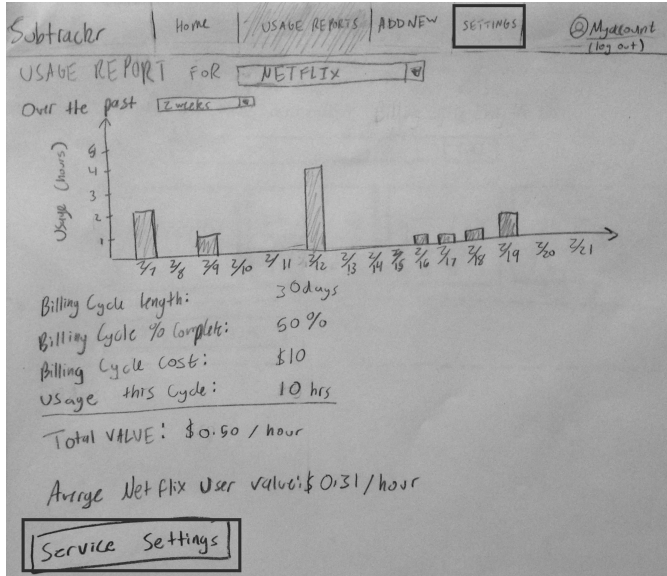 Subtrackr HOME USAGE REPORTS ADD NEW SETTINGS Myaccount
(log out)
USAGE REPORT FOR NETFLIX
Over the past 2 weeks
Usage (hours)
5
4
3
2
1
2/7 2/8 2/9 2/10 2/11 2/12 2/13 2/14 2/15 2/16 2/17 2/18 2/19 2/20 2/21
Billing Cycle length: 30 days
Billing Cycle % Complete: 50%
Billing Cycle Cost: $10
Usage this Cycle: 10 hrs
Total VALUE: $0.50 / hour
Averge Netflix User value: $0.31/hour
Service Settings